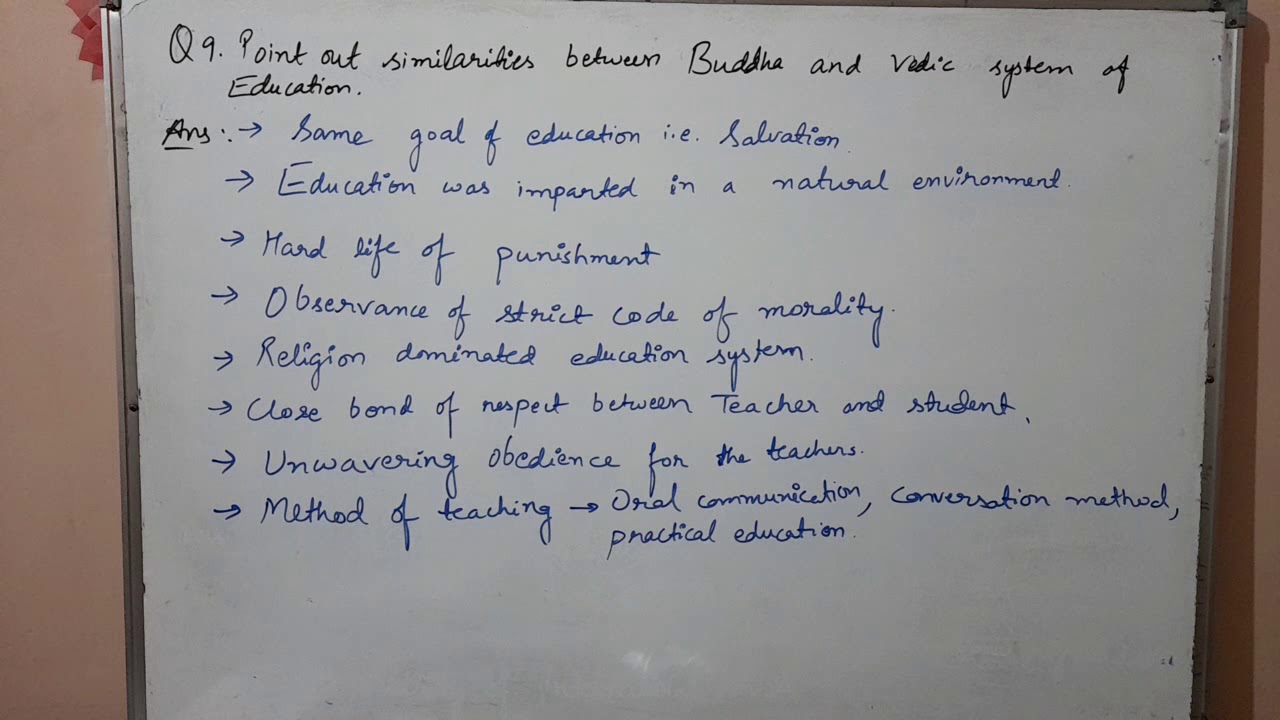 Q 9. Point out similarities between Buddha and Vedic system of
Education.
Ans :→ Same goal of education i.e. Salvation.
→ Education was imparted in a natural environment.
→ Hard life of punishment
→ Observance of strict code of morality.
→ Religion dominated education system.
→ Close bond of respect between Teacher and student.
→ Unwavering obedience for the teachers.
→ Method of teaching → Oral communication, Conversation method,
practical education.